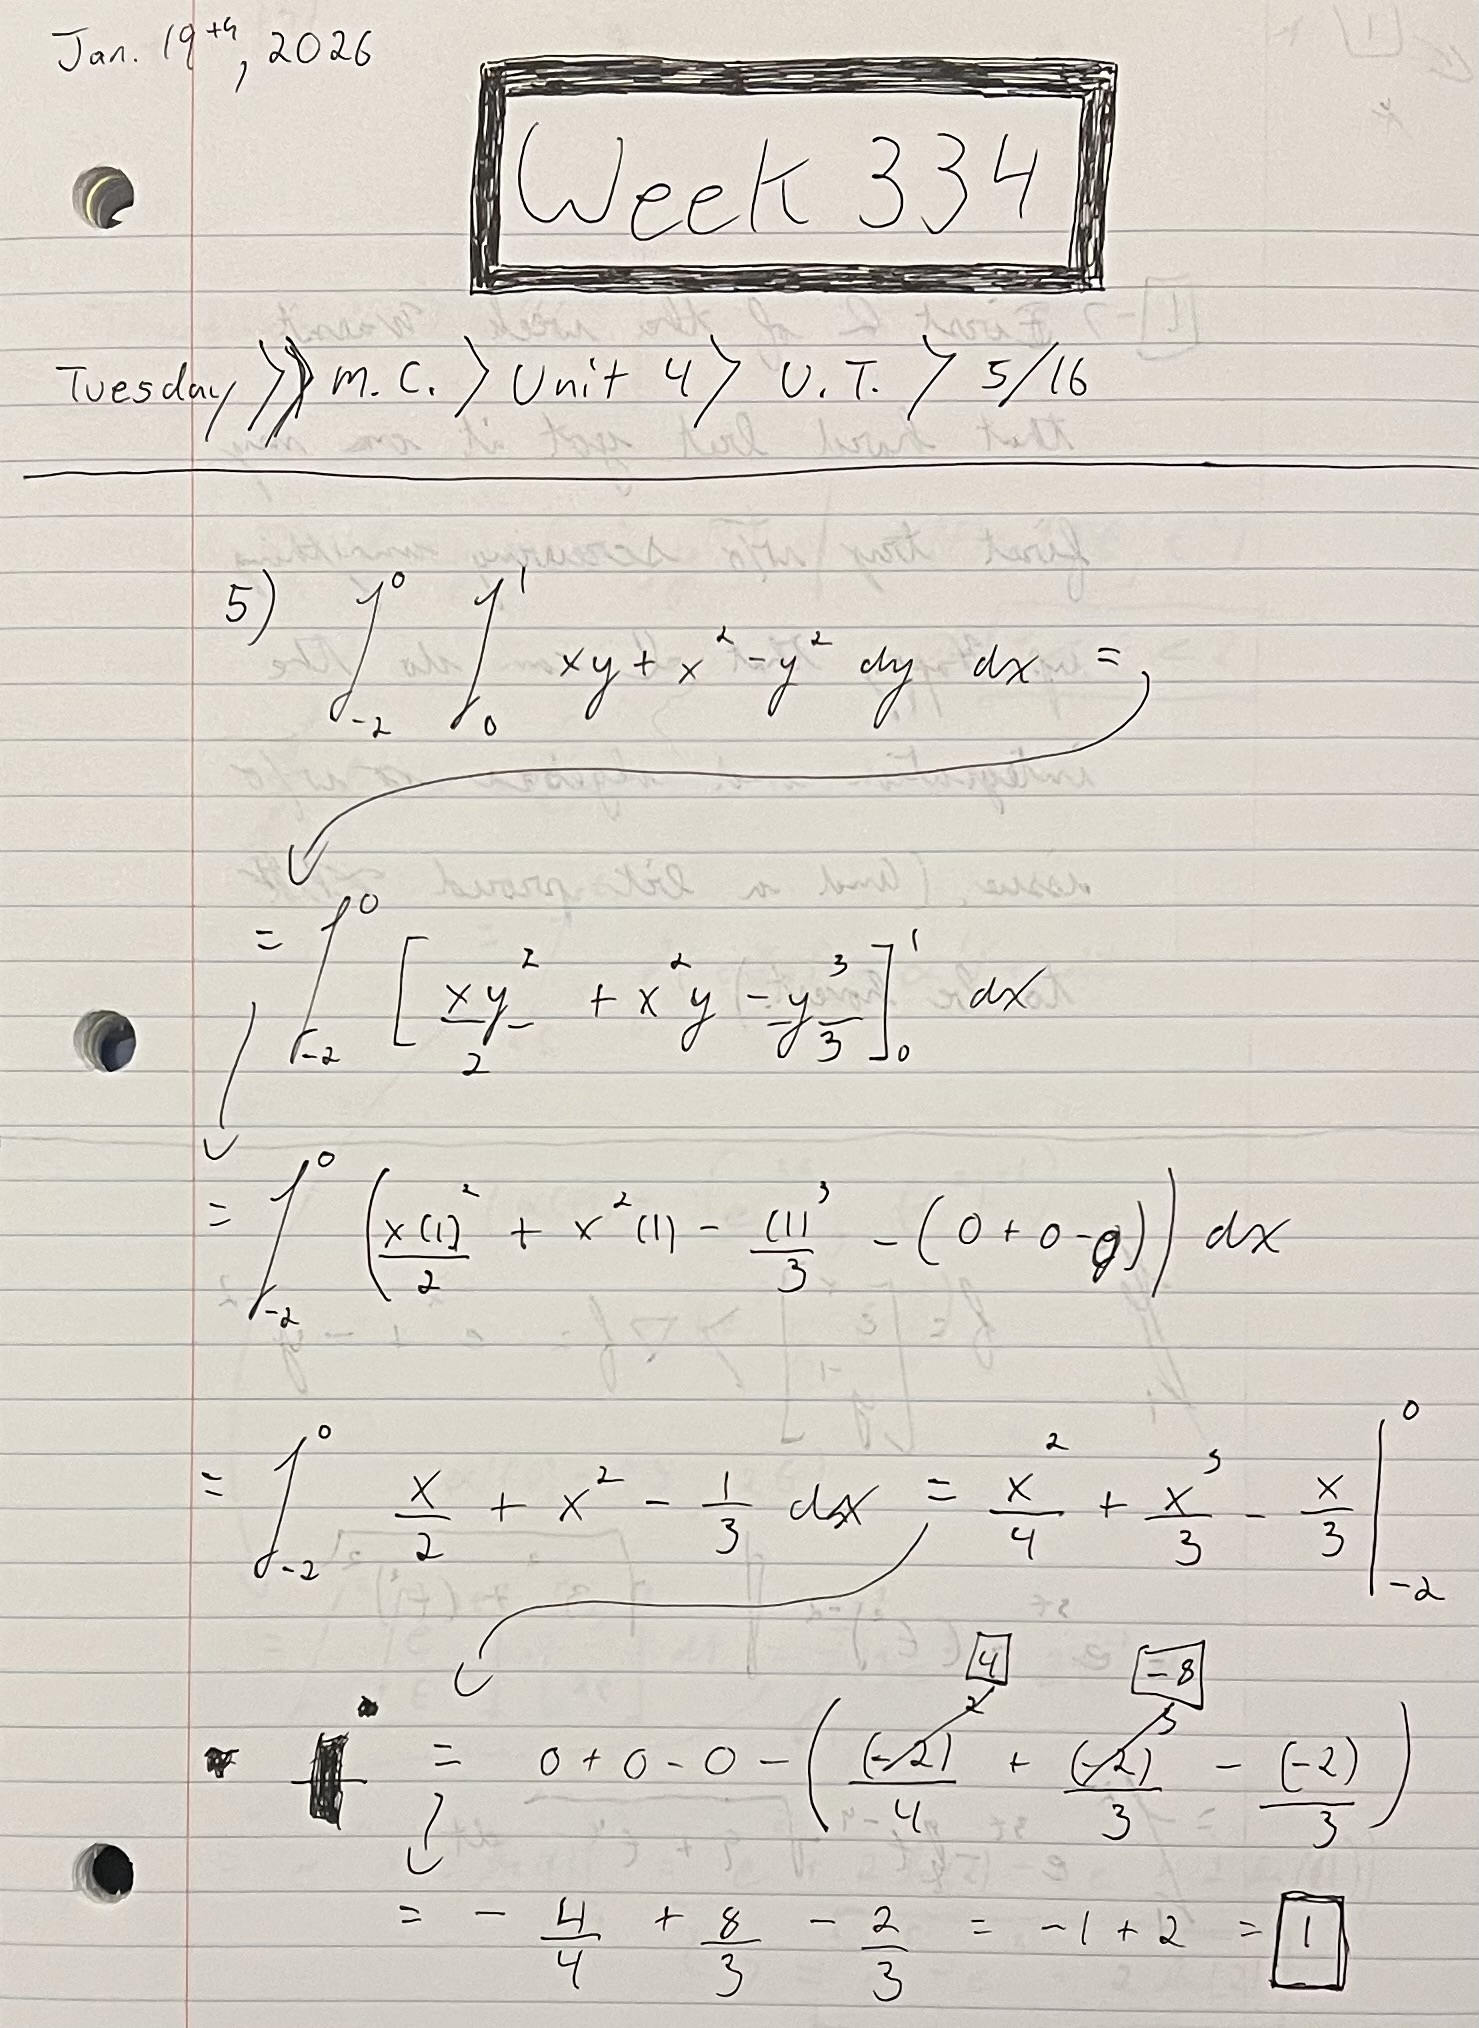 Jan. 19th, 2026
Week 334
Tuesday >>> M.C. > Unit 4 > U.T. > 5/16
5) ∫_{-2}^{0} ∫_{0}^{1} xy + x² - y² dy dx =
= ∫_{-2}^{0} [xy²/2 + x²y - y³/3]_{0}^{1} dx
= ∫_{-2}^{0} (x(1)²/2 + x²(1) - (1)³/3 - (0 + 0 - 0)) dx
= ∫_{-2}^{0} x/2 + x² - 1/3 dx = x²/4 + x³/3 - x/3 |_{-2}^{0}
4 -8
= 0 + 0 - 0 - ((-2)²/4 + (-2)³/3 - (-2)/3)
= - 4/4 + 8/3 - 2/3 = -1 + 2 = 1